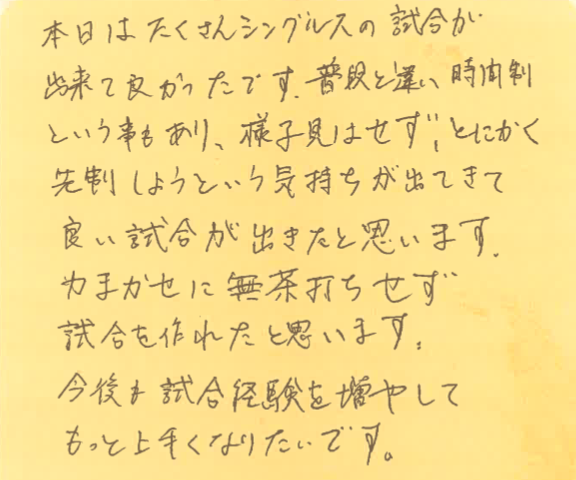 本日はたくさんシングルスの試合が
出来て良かったです。普段と違い時間制
という事もあり、様子見はせず、とにかく
先制しようという気持ちが出てきて
良い試合が出きたと思います。
力まかせに無茶打ちせず
試合を作れたと思います。
今後も試合経験を増やして
もっと上手くなりたいです。